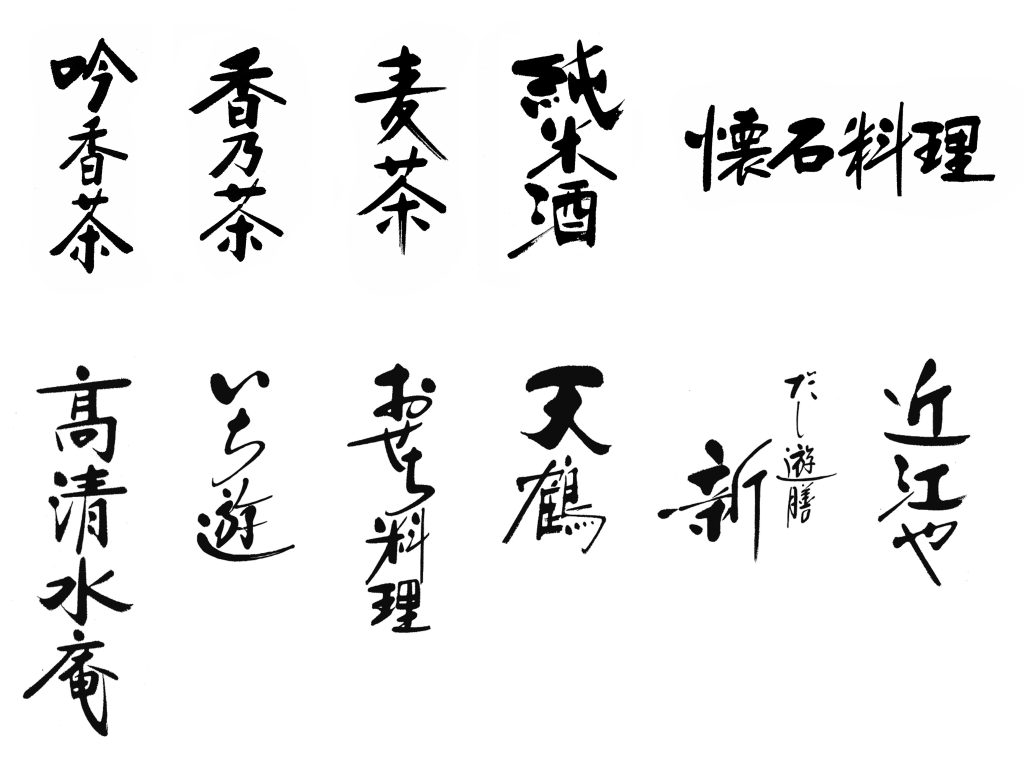 吟香茶
香乃茶
麦茶
純米酒
懐石料理
高清水庵
いち遊
おせち料理
天鶴
だし遊膳
新
近江や